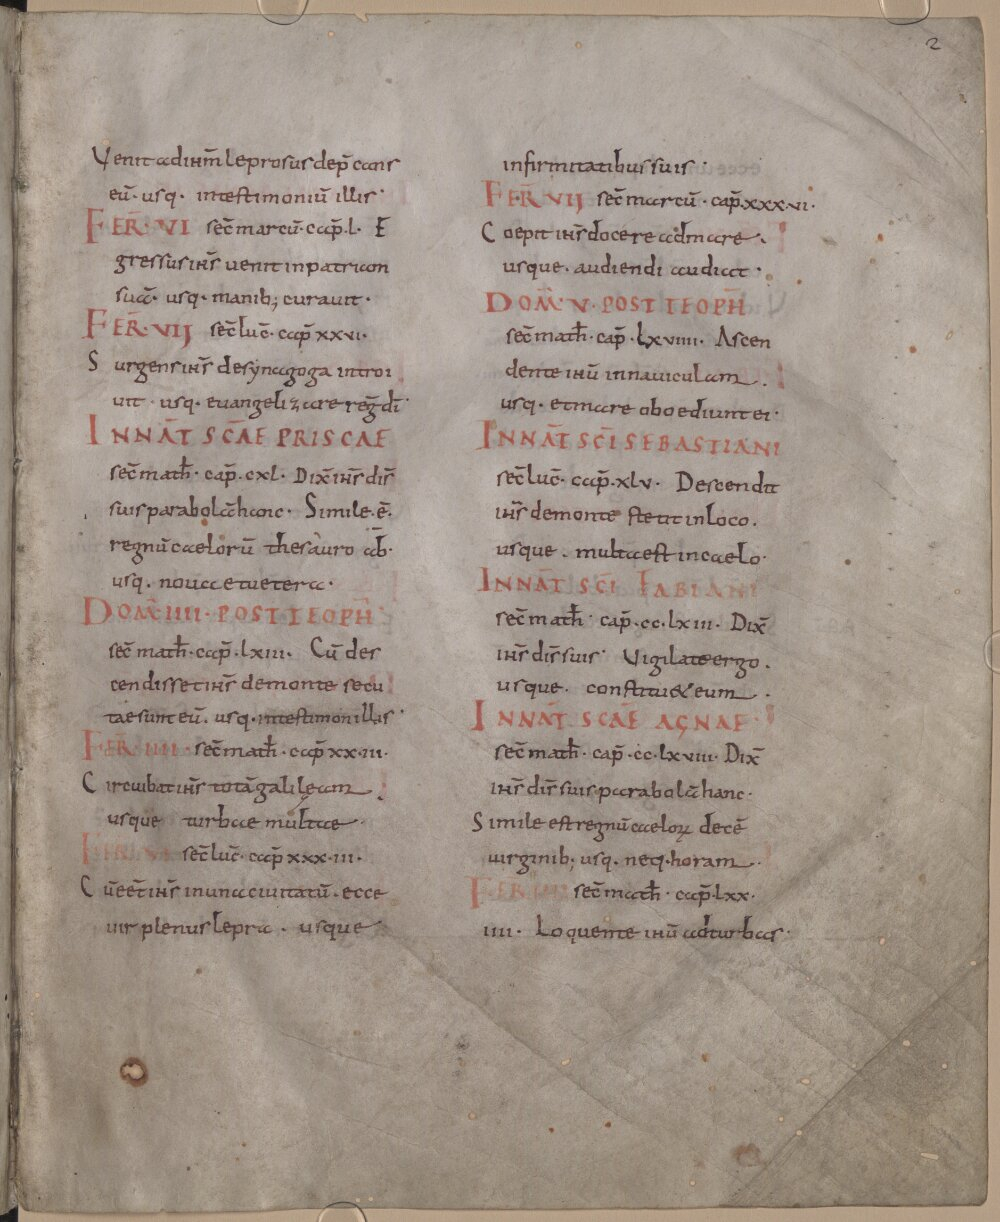 2
Venit ad ihm̄ leprosus dep̄cans
eū. usq. intestimoniū illis·
FER̄· VI sec̄ marcū· cap̄·l· E
gressus ihs̄ uenit inpatriam
suā· usq· manib; curauit·
FER̄· VIJ sec̄ luc̄· cap̄ xxvi·
Surgens ihs̄ desynagoga introi
uit· usq· euangelizare reg̃ dī·
INNAT̄ SC̄AE PRISCAE
sec̄ math̄· cap̄· cxl· Dix̄ ihs̄ dis̄
suis parabolā hanc· Simile· ē·
regnū caelorū thesauro ab̄·
usq· noua et uetera·
DOM̄ IIII· POST TEOPH̄
sec̄ math̄· cap̄· lxiii· Cū des
cendisset ihs̄ demonte secu
tae sunt eū· usq· intestimon illis·
FER̄ IIII· sec̄ math̄· cap̄ xx·iii·
Circuibat ihs̄ totā galilęam
usque turbae multae·
FER̄ VI sec̄ luc̄· cap̄ xxx·iii·
Cū eēt ihs̄ inuna ciuitatū· ecce
uir plenus lepra· usque
infirmitatibus suis·
FER̄ VIJ sec̄ marcū· cap̄· xxx·vi·
Coepit ihs̄ docere admare·
usque· audiendi audiat·
DOM̄· V· POST TEOPH̄
sec̄ math̄· cap̄· lxviiii· Ascen
dente ihū innauiculam·
usq· et mare oboediunt ei·
INNAT̄ SC̄I SEBASTIANI
sec̄ luc̄· cap̄· xlv· Descendit
ihs̄ demonte stetit inloco·
usque· multa est incaelo·
INNAT̄ SC̄I FABIANI
sec̄ math̄· cap̄· cc·lxiii· Dix̄
ihs̄ dis̄ suis· Vigilate ergo·
usque· constitu&eum·
INNAT̄ SCAE AGNAE·
sec̄ math̄· cap̄· cc·lxviii· Dix̄
ihs̄ dis̄ suis parabolā hanc·
Simile est regnū caeloꝝ decē
uirginib; usq· neq· horam·
FER̄ IIII sec̄ math̄ cap̄· lxx·
iiii· Loquente ihū adturbas·